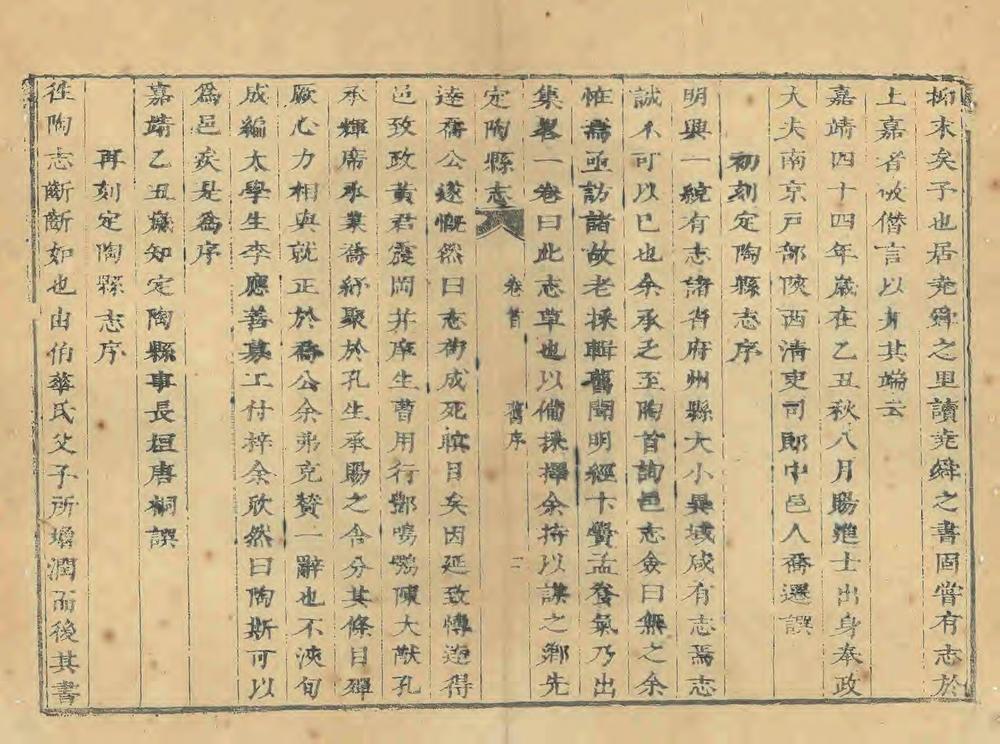 抑末矣予也居堯舜之里讀堯舜之書固嘗有志於
上嘉者故僭言以弁其端云
嘉靖四十四年歲在乙丑秋八月賜進士出身奉政
大夫南京戸部陜西清吏司郎中邑人喬遷譔
初刻定陶縣志序
明興一統有志諸省府州縣大小異域咸有志焉志
誠不可以已也余承乏至陶首詢邑志僉曰無之余
惟焉亟訪諸故老採輯舊聞明經卞賢孟養氣乃出
集畧一卷曰此志草也以備採擇余持以謀之鄉先
定陶縣志 卷首 舊序 二
逵喬公遂慨然曰志茍成死瞑目矣因延致博遊得
邑致政黃君震岡并庠生曹用行鄧鳴鶚陳大猷孔
承輝席承業喬紓聚於孔生承賜之舍分其條目殫
厥心力相與就正於喬公余弟克贊一辭也不浹旬
成編太學生李應善募工付梓余欣然曰陶斯可以
爲邑矣是爲序
嘉靖乙丑歲知定陶縣事長垣唐桐譔
再刻定陶縣志序
徃陶志斷斷如也由伯華氏父子所增潤而後其書